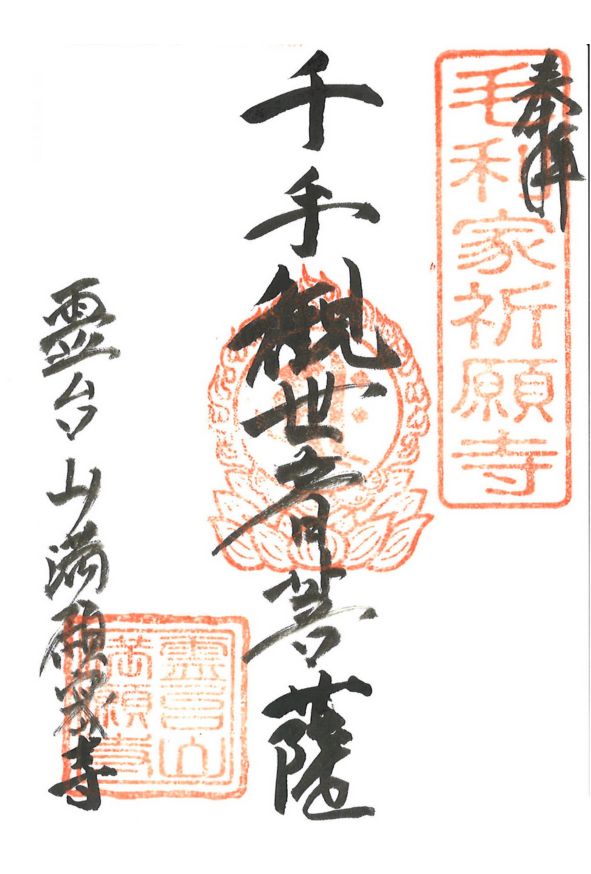 奉拝
毛利家祈願寺
千手観世音菩薩
霊台山満願寺
靈台山
満願寺